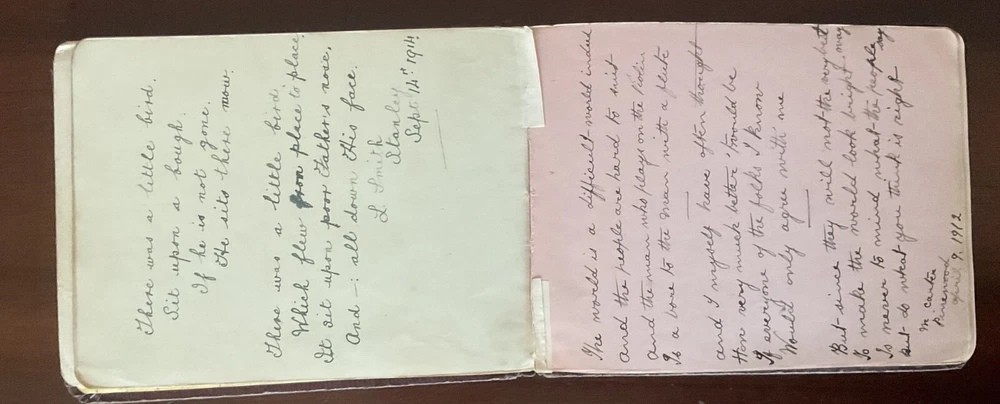 There was a little bird.
Sit upon a bough.
If he is not gone.
He sits there mow.
There was a little bird.
Which flew from place to place.
It sit upon poor Father's nose,
And —: all down His face.
L. Smith
Stanley
Sept 14" 1914
The world is a difficult world indeed
and the people are hard to suit
and the man who plays on the violin
Is a bore to the man with a flute
and I myself have often thought
How very much better 'twould be
If everyone of the folks I know
Would only agree with me
But since they will not the very best way
To make the world look bright
Is never to mind what the people say
but do what you think is right
M Carter
Pinewood
April 9. 1912